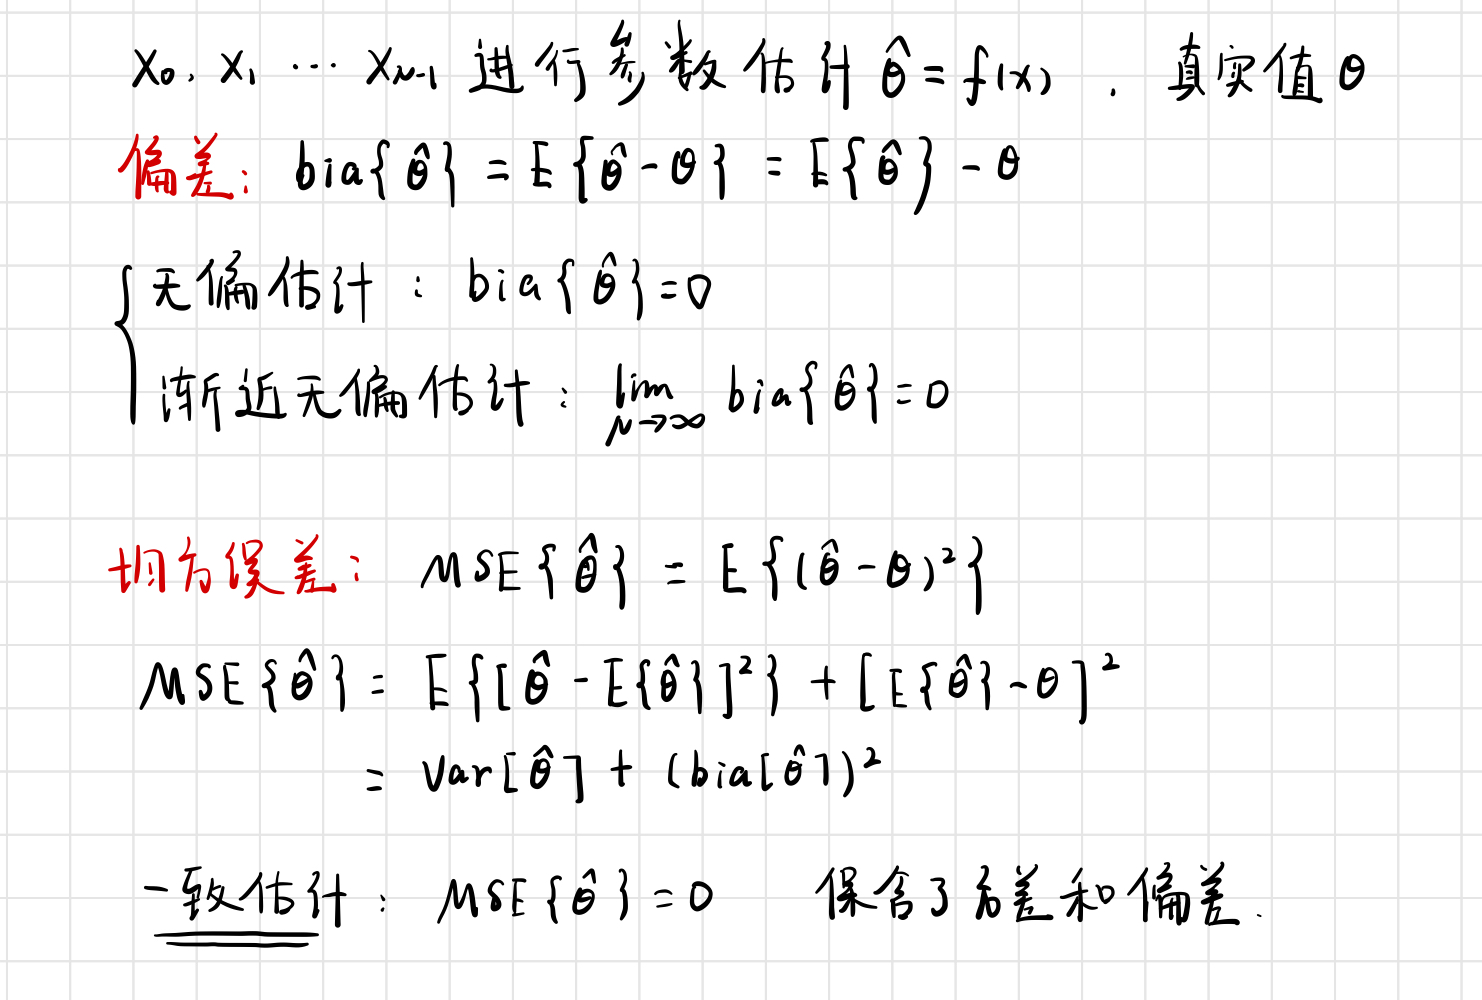 x₀, x₁ ⋯ x_{N-1} 进行参数估计 θ̂ = f(x) , 真实值 θ
偏差: bia{θ̂} = E{θ̂ - θ} = E{θ̂} - θ
无偏估计 : bia{θ̂} = 0
渐近无偏估计 : lim_{N→∞} bia{θ̂} = 0
均方误差: MSE{θ̂} = E{(θ̂ - θ)²}
MSE{θ̂} = E{[θ̂ - E{θ̂}]²} + [E{θ̂} - θ]²
= Var[θ̂] + (bia[θ̂])²
一致估计 : MSE{θ̂} = 0 保含了方差和偏差.